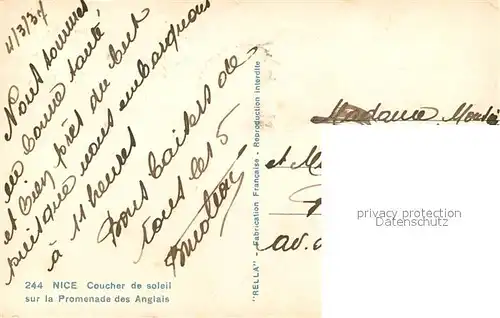 4/3/37
Nous sommes
en bonne santé
et bien près du but
puisque nous embarquons
à 11 heures
Bons baisers de
tous les 5
244 NICE Coucher de soleil
sur la Promenade des Anglais
"RELLA" - Fabrication Française - Reproduction interdite
Madame
et M
av.
privacy protection
Datenschutz